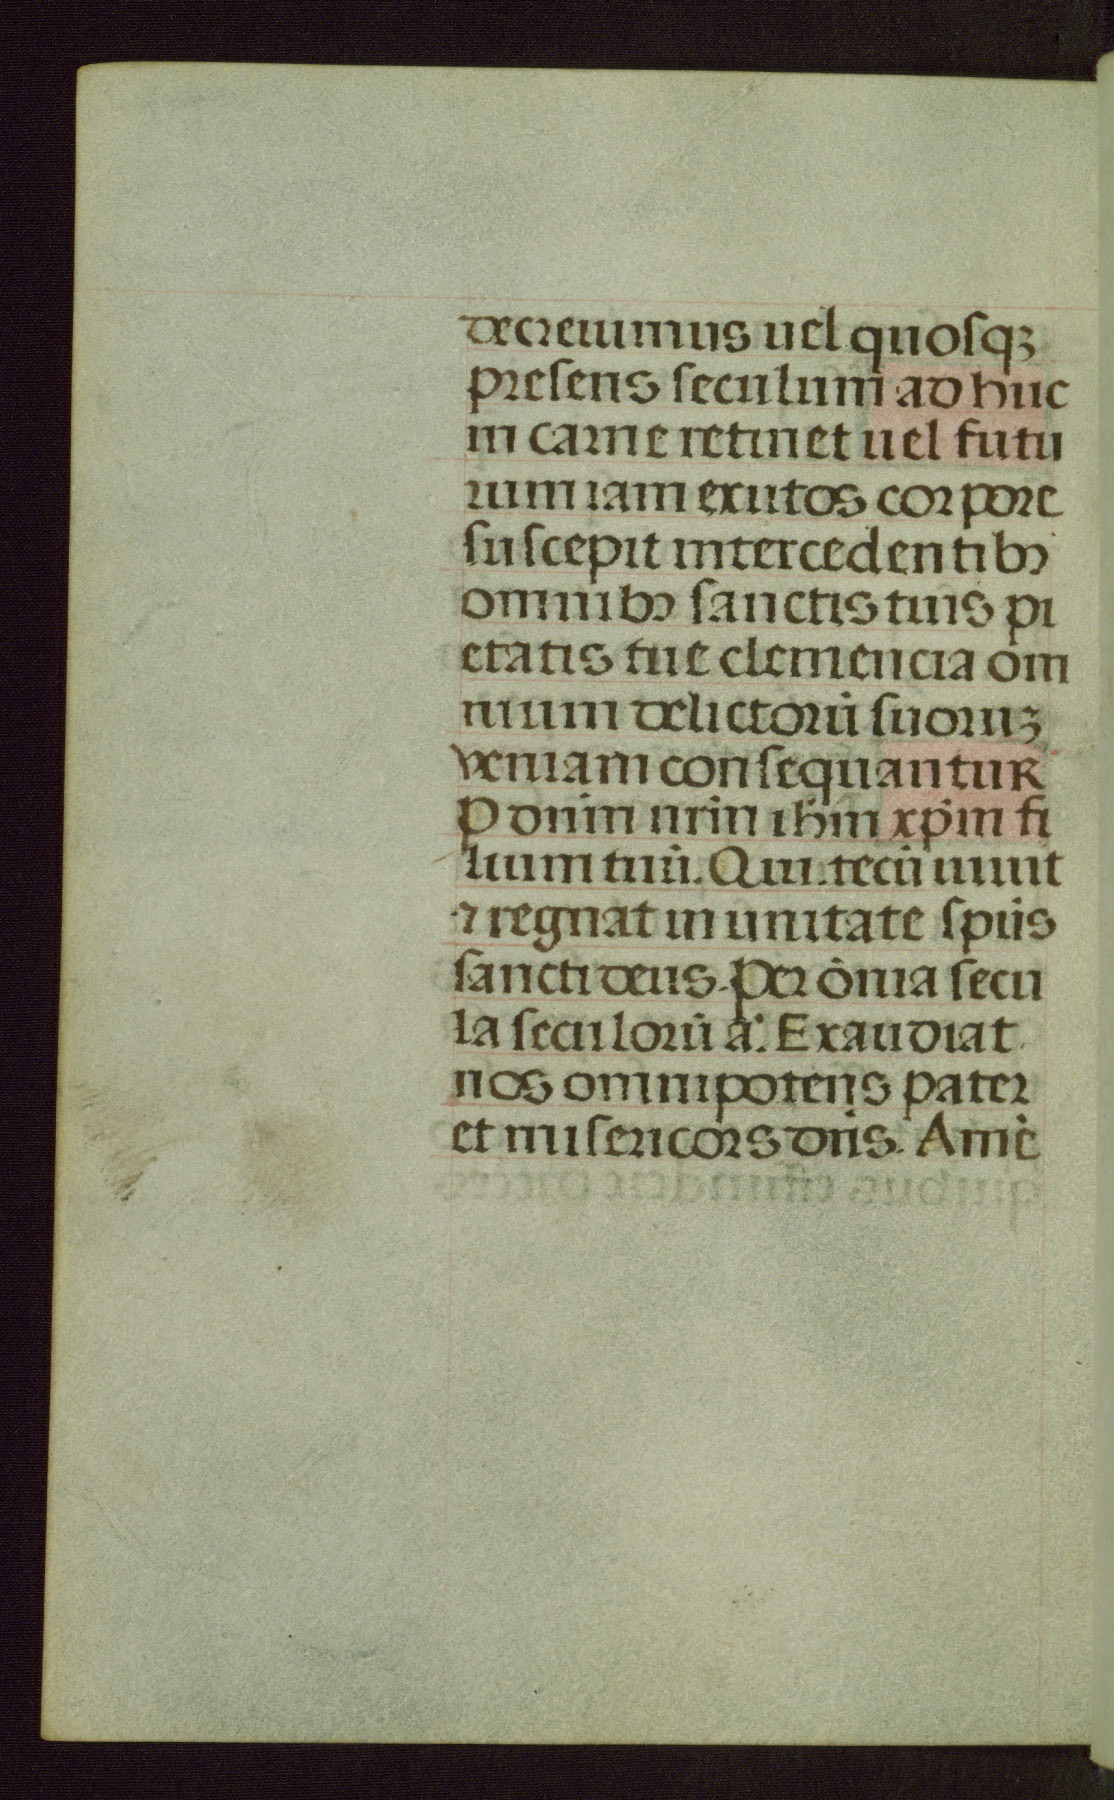 decreuimus uel quosqꝫ
presens seculum ad huc
in carne retinet uel futu
rum iam exutos corpore
suscepit intercedentibꝰ
omnibꝰ sanctis tuis pi
etatis tue clemencia om
nium delictorū suoruꝫ
veniam consequantur
P dnīm nrīn ihm̄ xpm̄ fi
lium tuū. Qui. tecū uiuit
⁊ regnat in unitate spūs
sancti deus. Per ōnia secu
la seculorū a᷑. Exaudiat
nos omnipotens pater
et misericors dns̄. Amē